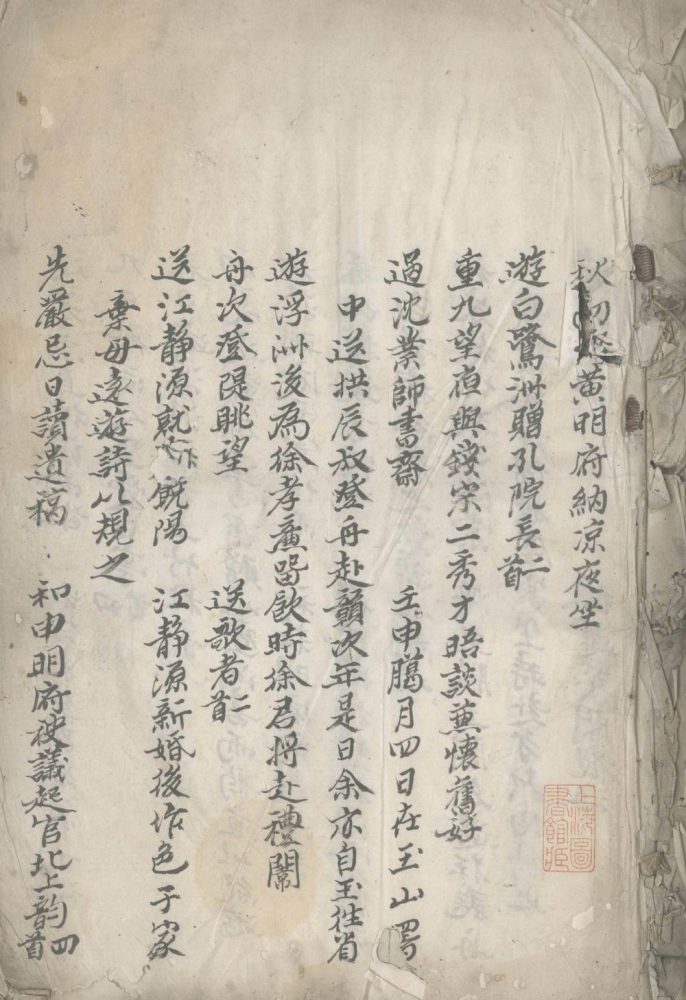 秋初黃明府納凉夜坐
遊白鷺洲贈孔院長二首
重九望與錢宋二秀才晤談蒹懷舊好
過沈業師書齋 壬申臈月四日在玉山署
中送拱辰叔登舟赴贛次年是日余亦自玉徃省
遊浮洲後為徐孝廉留飲時徐君將赴禮闈
舟次登隄眺望 送歌者二首
送江靜源就餼陽 江靜源新婚後作色于家
棄母遠遊詩以規之
先嚴忌日讀遺稿 和申明府被議起官北上韵四首
上海圖
書館藏